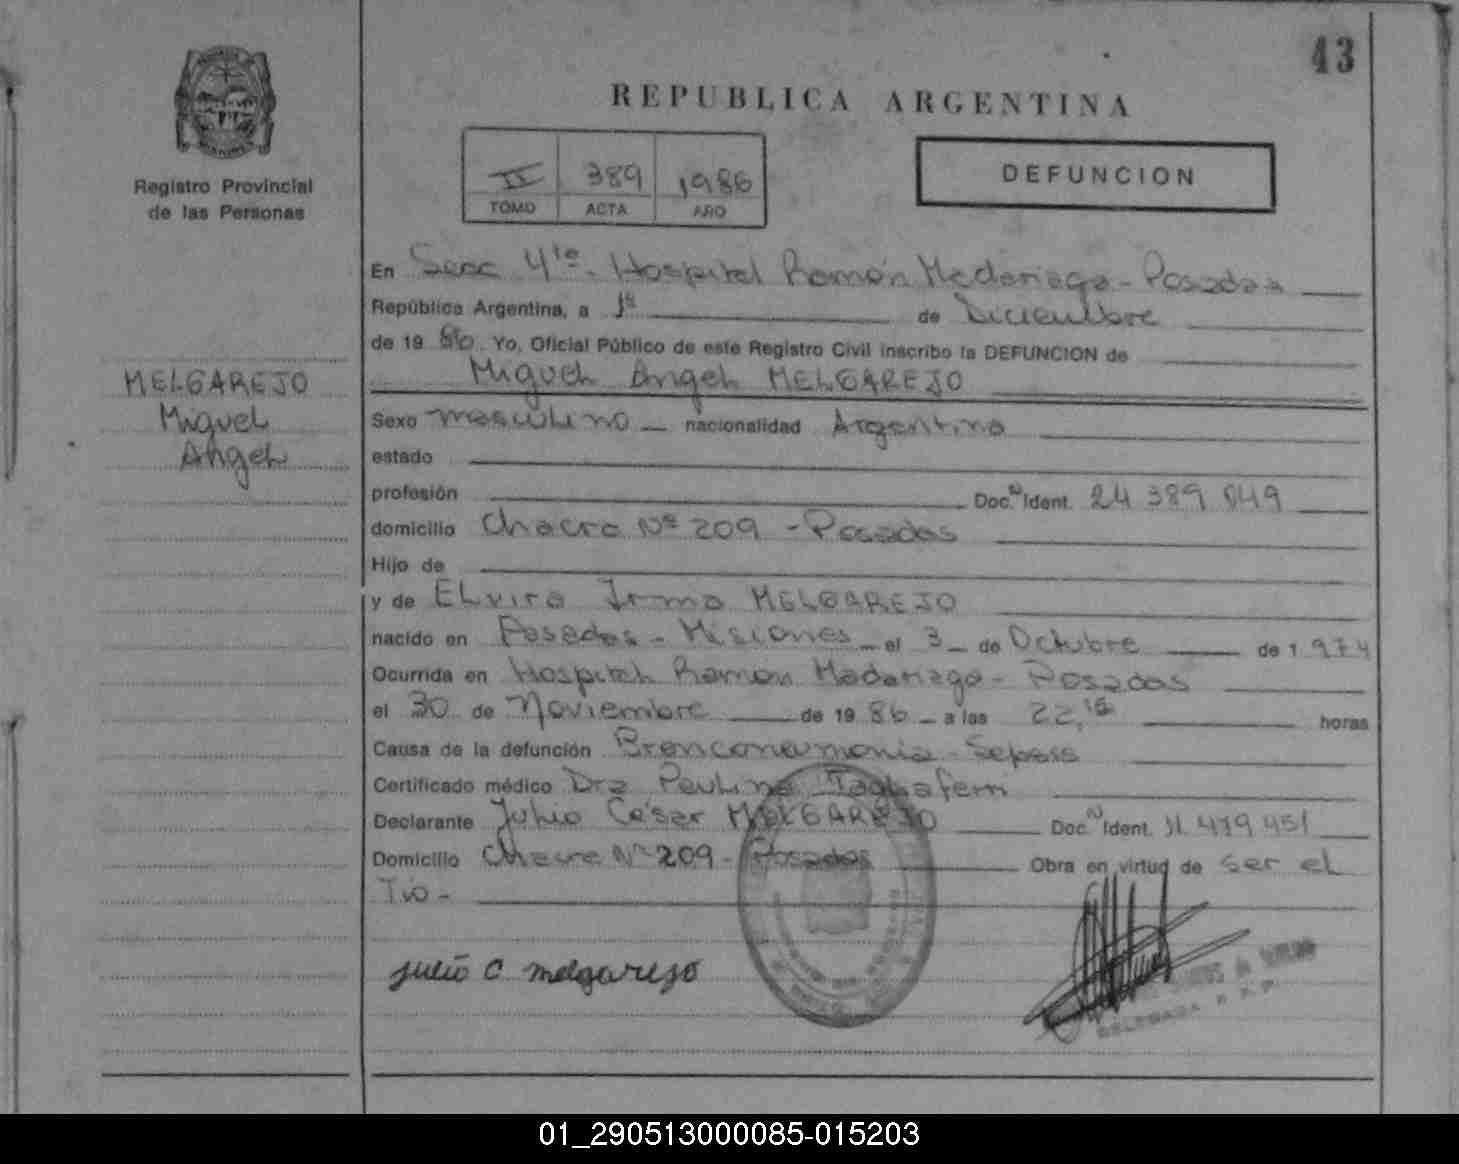 43
REPUBLICA ARGENTINA
II 389 1986
TOMO ACTA AÑO
DEFUNCION
Registro Provincial
de las Personas
MELGAREJO
Miguel
Angel
En Secc 4ta - Hospital Ramón Madariaga - Posadas
República Argentina, a 1º de Diciembre
de 19 86. Yo, Oficial Público de este Registro Civil inscribo la DEFUNCION de
Miguel Angel MELGAREJO
Sexo masculino nacionalidad Argentina
estado
profesión Doc.N Ident. 24 389 049
domicilio Chacra Nº 209 - Posadas
Hijo de
y de Elvira Irma MELGAREJO
nacido en Posadas - Misiones el 3 de Octubre de 1 974
Ocurrida en Hospital Ramón Madariaga - Posadas
el 30 de Noviembre de 19 86 a las 22,15 horas
Causa de la defunción Bronconeumonia - Sepsis
Certificado médico Dra Paulina Tagliaferri
Declarante Julio César MELGAREJO Doc.N Ident. 11.479 451
Domicilio Chacra Nº 209 - Posadas Obra en virtud de ser el
Tio -
Julio C Melgarejo
DELEGADA R. P. P.
01_290513000085-015203